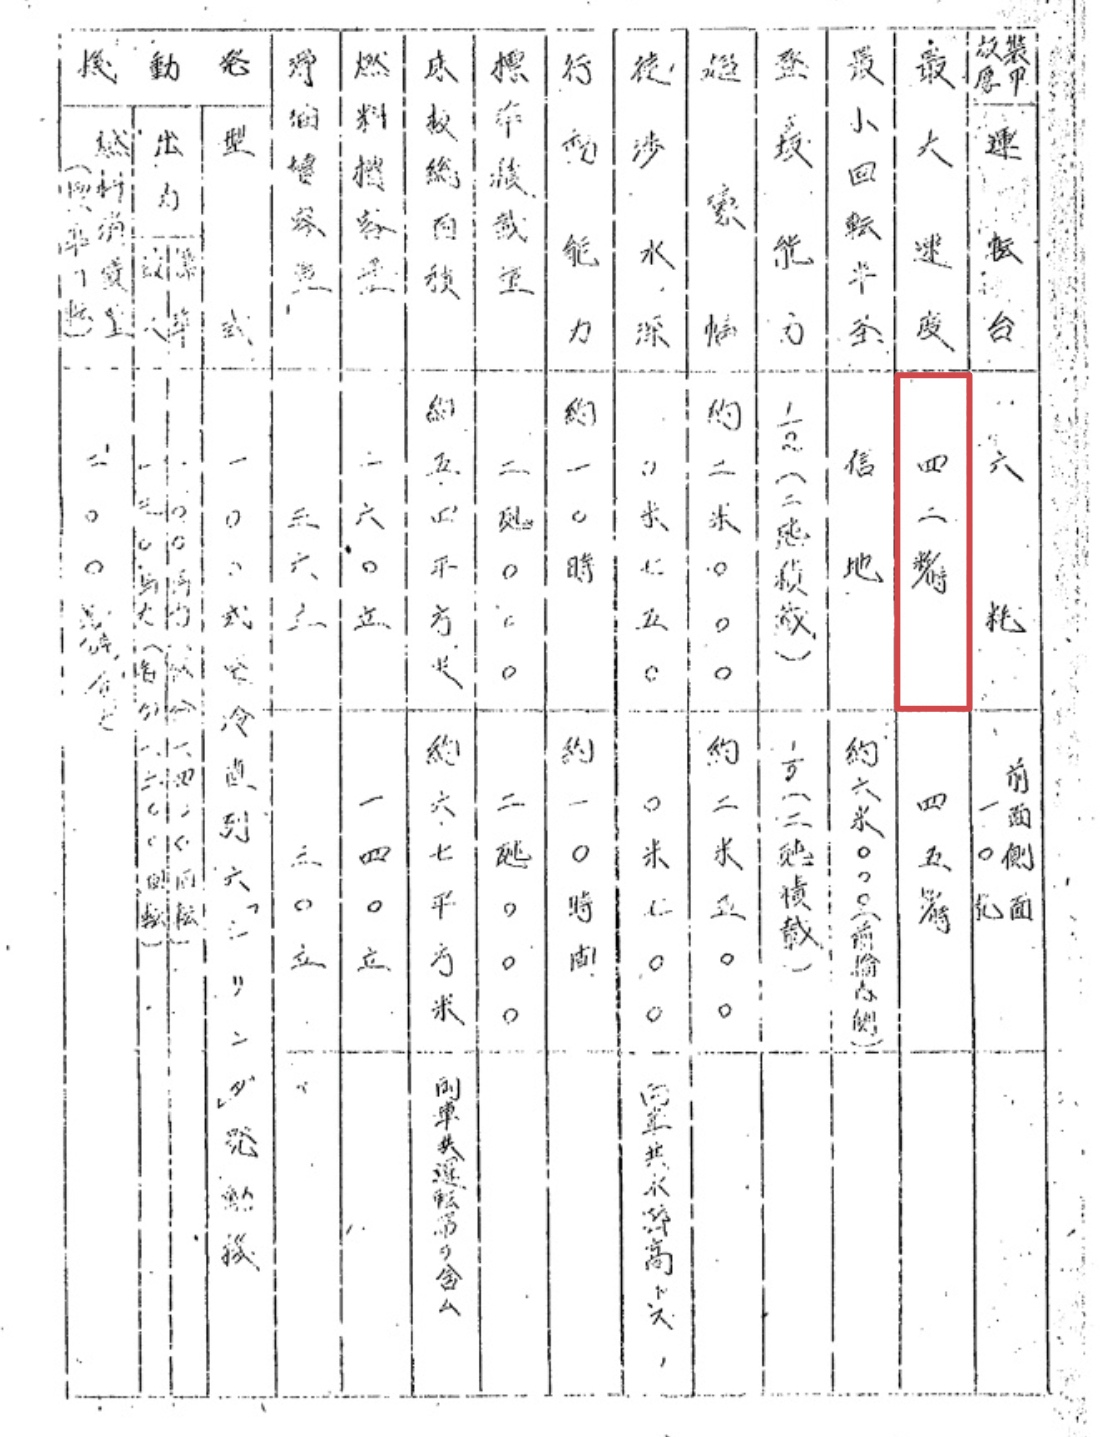 装甲板厚
運転台
六粍
前面側面一〇粍
最大速度
四二粁時
四五粁時
最小回転半圣
信地
約六米〇〇〇(前輪内側)
登坂能力
1/2(二瓲積載)
1/3(二瓲積載)
超壕幅
約二米〇〇〇
約二米五〇〇
徒渉水深
〇米七五〇
〇米七〇〇
両車共水際高トス
行動能力
約一〇時
約一〇時間
標準積載量
二瓲〇〇〇
二瓲〇〇〇
床板総面積
約五四平方米
約六・七平方米
両車共運転席ヲ含ム
燃料槽容量
二六〇立
一四〇立
滑油槽容量
三六立
三〇立
発動機
型式
一〇〇式空冷直列六シリンダ発動機
出力
標準
馬力
回転)
最大
一三〇馬力(毎分二〇〇〇回転)
燃料消費量
二〇〇